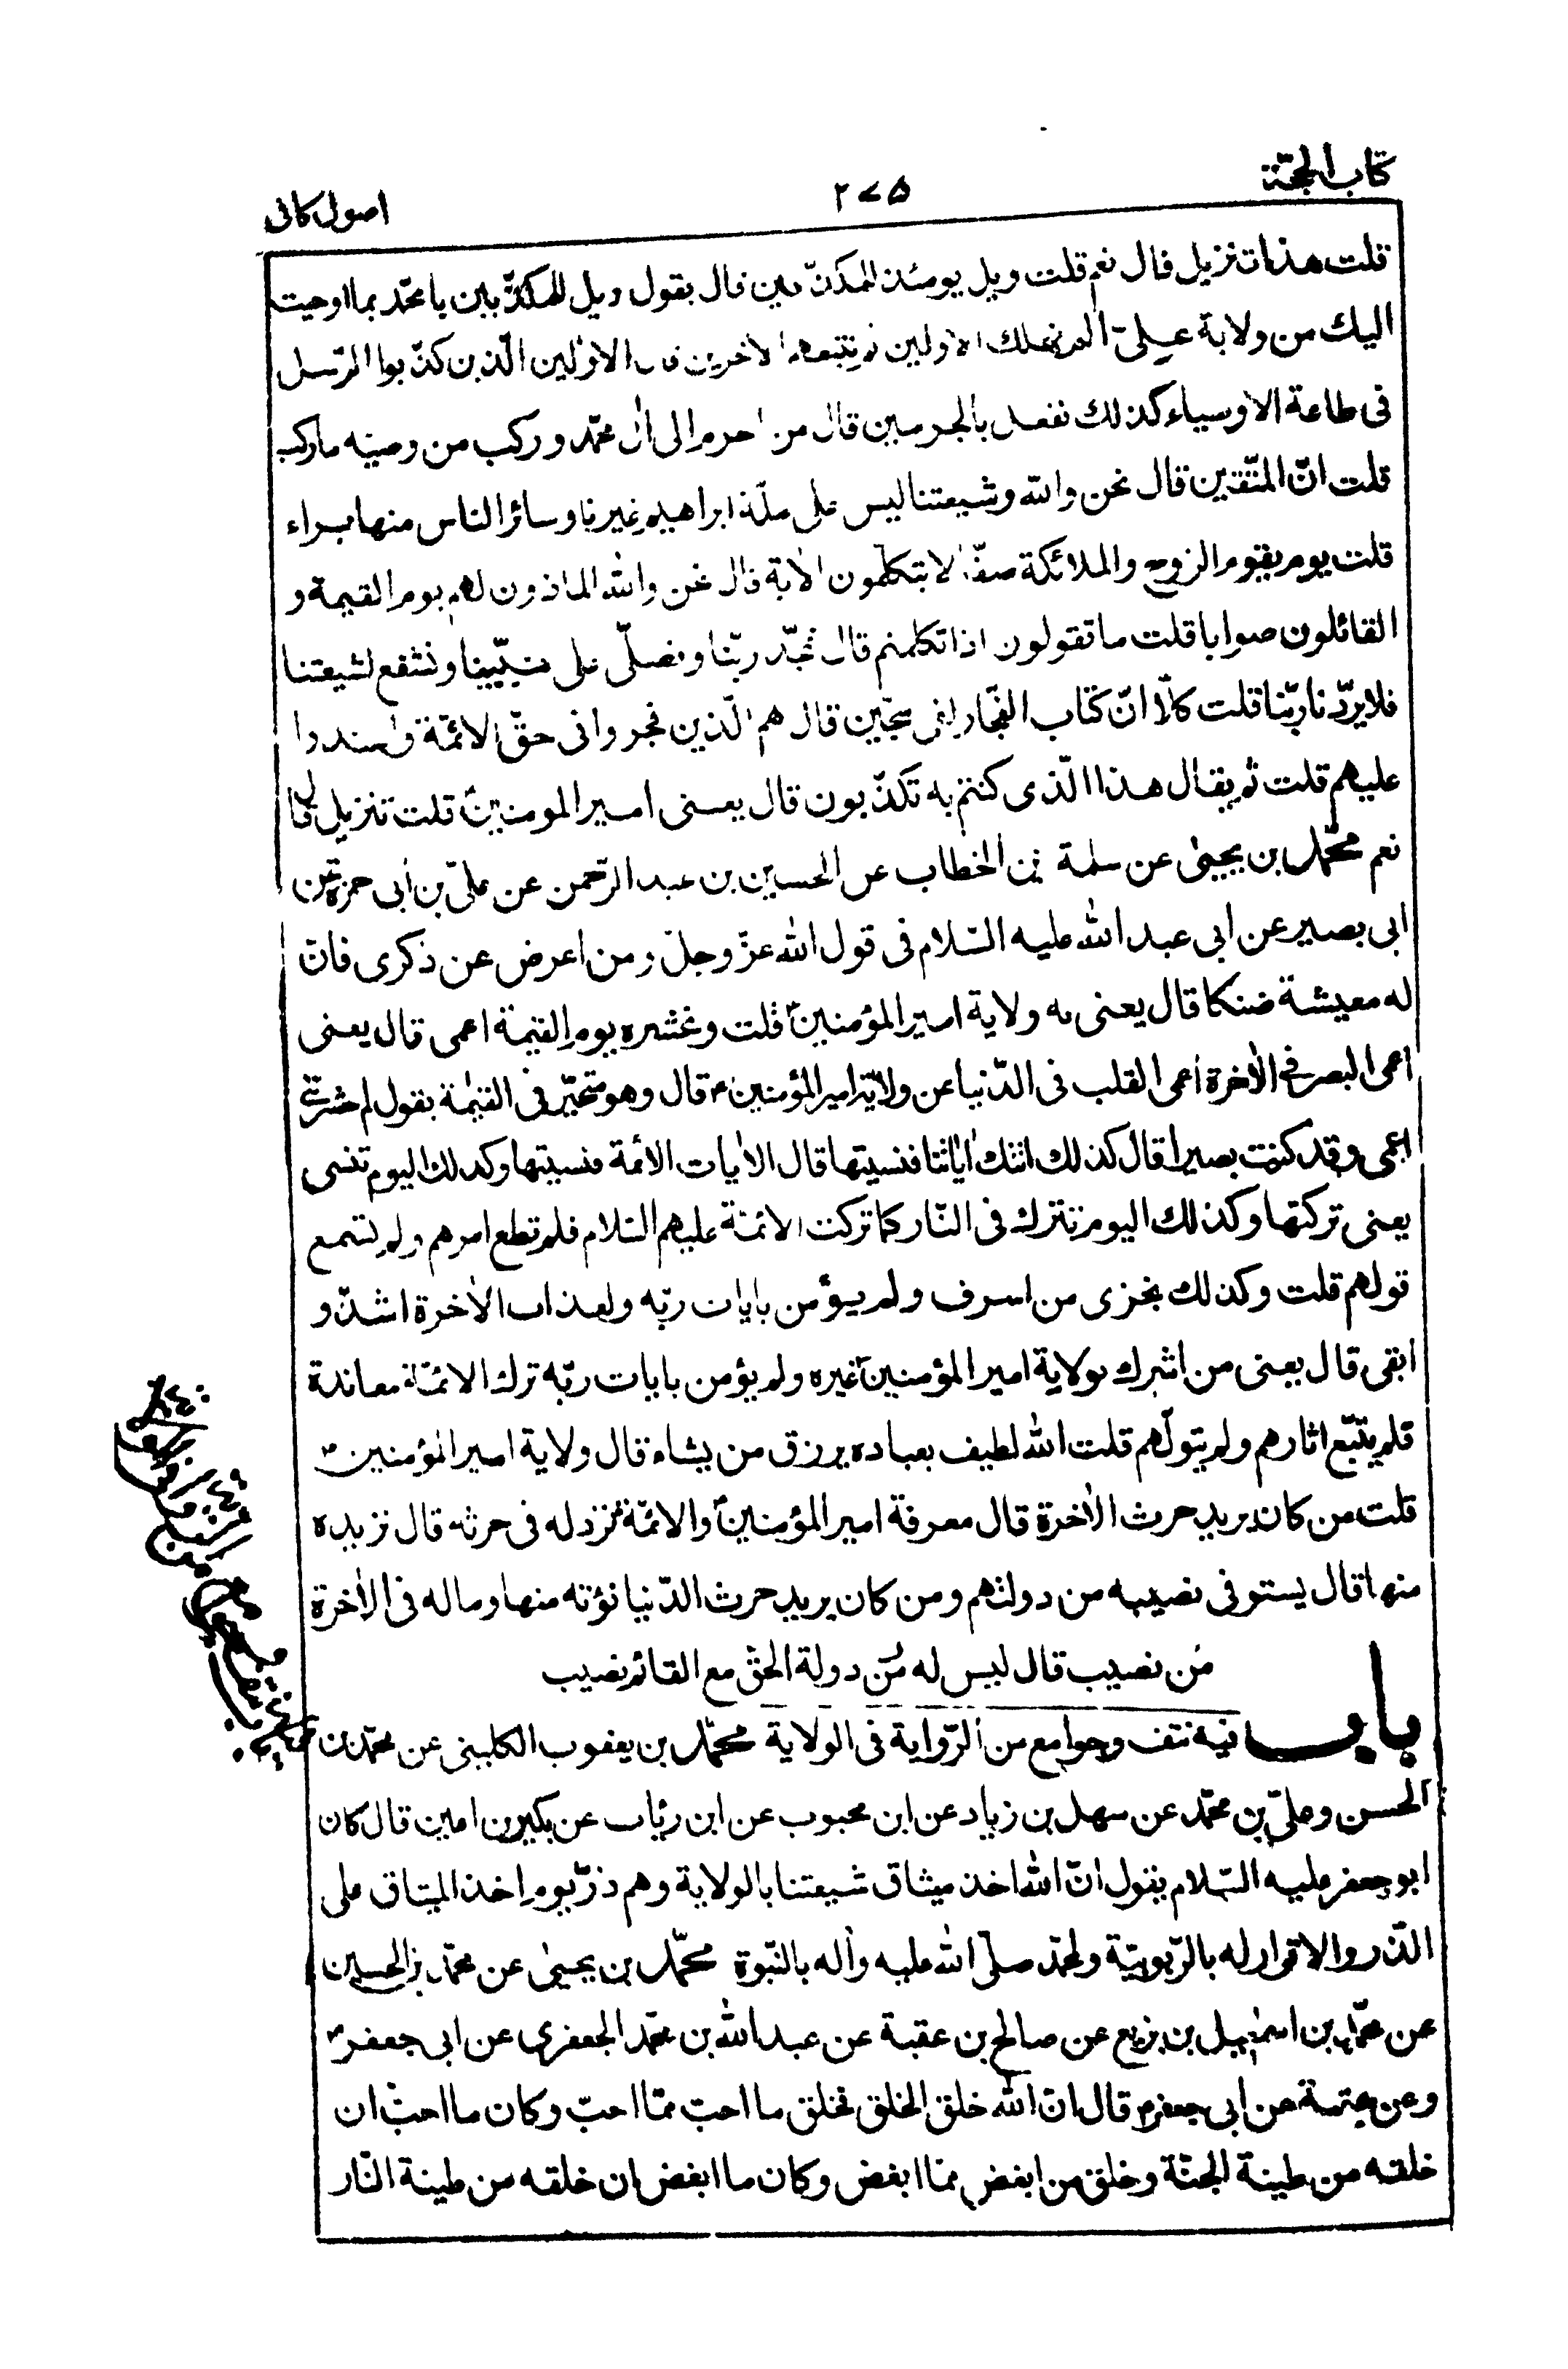 كتاب الحجّة
٢٧٥
اصول كافى
قلت هذا تنزيل قال نعم قلت ويل يومئذ للمكذّبين قال يقول ويل للمكذّبين يا محمّد بما اوحيت
اليك من ولاية علىّ الم نهلك الاولين ثم نتبعهم الاخرين قال الاوّلين الّذين كذّبوا الرّسل
فى طاعة الاوصياء كذلك نفعل بالمجرمين قال من اجرم الى ال محمّد و ركب من وصيّه ماركب
قلت انّ المتّقين قال نحن والله وشيعتنا ليس على ملّة ابراهيم غيرنا وسائر الناس منها براء
قلت يوم يقوم الروح والملائكة صفّا لا يتكلّمون الاية قال نحن والله الماذون لهم يوم القيمة و
القائلون صوابا قلت ما تقولون اذا تكلمتم قال نمجّد ربّنا و نصلّى على نبيّينا ونشفع لشيعتنا
فلا يردّنا ربّنا قلت كلّا انّ كتاب الفجّار لفى سجّين قال هم الّذين فجروا فى حقّ الائمّة و اعتدوا
عليهم قلت ثم يقال هذا الّذى كنتم به تكذّبون قال يعنى امير المومنين قلت تنزيل قال
نعم محمّد بن يحيى عن سلمة بن الخطاب عن الحسين بن عبد الرّحمن عن علىّ بن ابى حمزة عن
ابى بصير عن ابى عبد الله عليه السّلام فى قول الله عزّ وجلّ و من اعرض عن ذكرى فانّ
له معيشة ضنكا قال يعنى به ولاية امير المؤمنين قلت ونحشره يوم القيمة اعمى قال يعنى
اعمى البصر فى الاخرة اعمى القلب فى الدّنيا عن ولاية امير المؤمنين ع قال وهو متحيّر فى القيمة يقول لم حشرتنى
اعمى وقد كنت بصيرا قال كذلك اتتك اياتنا فنسيتها قال الايات الائمة فنسيتها وكذلك اليوم تنسى
يعنى تركتها وكذلك اليوم تترك فى النّار كما تركت الائمّة عليهم السّلام فلم تطع امرهم ولم تسمع
قولهم قلت وكذلك نجزى من اسرف ولم يؤمن بايات ربّه ولعذاب الاخرة اشدّ و
ابقى قال يعنى من اشرك بولاية امير المؤمنين غيره ولم يؤمن بايات ربّه ترك الائمّة معاندة
فلم يتّبع اثارهم ولم يتولّهم قلت الله لطيف بعباده يرزق من يشاء قال ولاية امير المؤمنين
قلت من كان يريد حرث الاخرة قال معرفة امير المؤمنين والائمّة نزد له فى حرثه قال نزيده
منها قال يستوفى نصيبه من دولتهم ومن كان يريد حرث الدّنيا نؤته منها وماله فى الاخرة
من نصيب قال ليس له من دولة الحقّ مع القائم نصيب
باب فيه نتف وجوامع من الرّواية فى الولاية محمّد بن يعقوب الكلينى عن محمّد بن
الحسن وعلىّ بن محمّد عن سهل بن زياد عن ابن محبوب عن ابن رئاب عن بكير بن اعين قال كان
ابو جعفر عليه السّلام يقول انّ الله اخذ ميثاق شيعتنا بالولاية وهم ذرّ يوم اخذ الميثاق على
الذّر والاقرار له بالرّبوبيّة ولمحمّد صلّى الله عليه واله بالنّبوة محمّد بن يحيى عن محمّد بن الحسين
عن محمّد بن اسمعيل بن بزيع عن صالح بن عقبة عن عبد الله بن محمّد الجعفرى عن ابى جعفر
وعن عقبة عن ابى جعفر قال انّ الله خلق الخلق فخلق ما احبّ ممّا احبّ وكان ما احبّ ان
خلقه من طينة الجنّة وخلق من ابغض ممّا ابغض وكان ما ابغض ان خلقه من طينة النّار